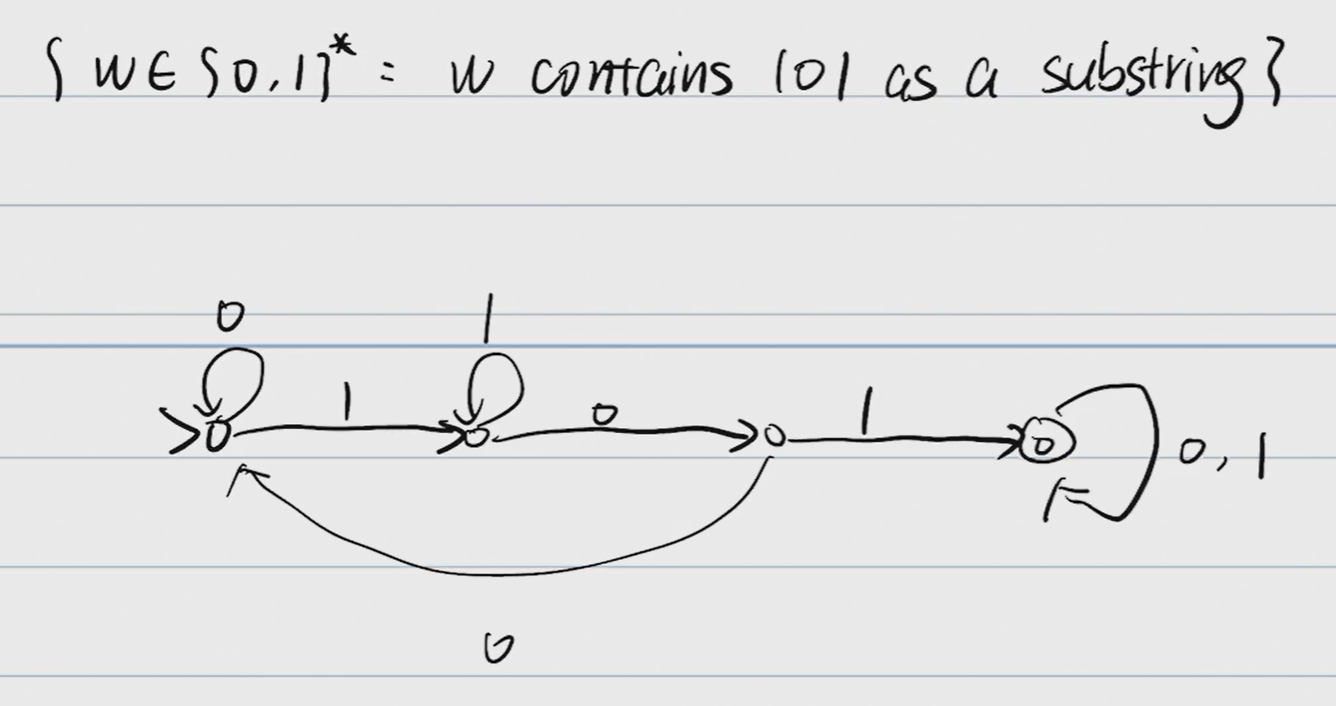 { w ∈ {0,1}* : w contains 101 as a substring}
0 1
1 0 1
0, 1
0